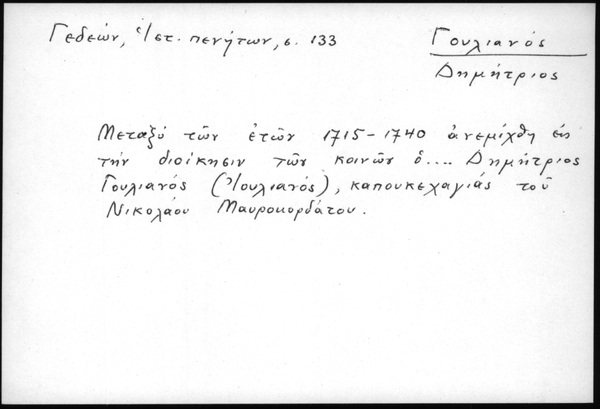 Γεδεών, Ἱστ. πενήτων, σ. 133
Γουλιανός
Δημήτριος
Μεταξύ τῶν ἐτῶν 1715-1740 ἀνεμίχθη εἰς
τήν διοίκησιν τῶν κοινῶν ὁ.... Δημήτριος
Γουλιανός (Ἰουλιανός), καπουκεχαγιάς τοῦ
Νικολάου Μαυροκορδάτου.